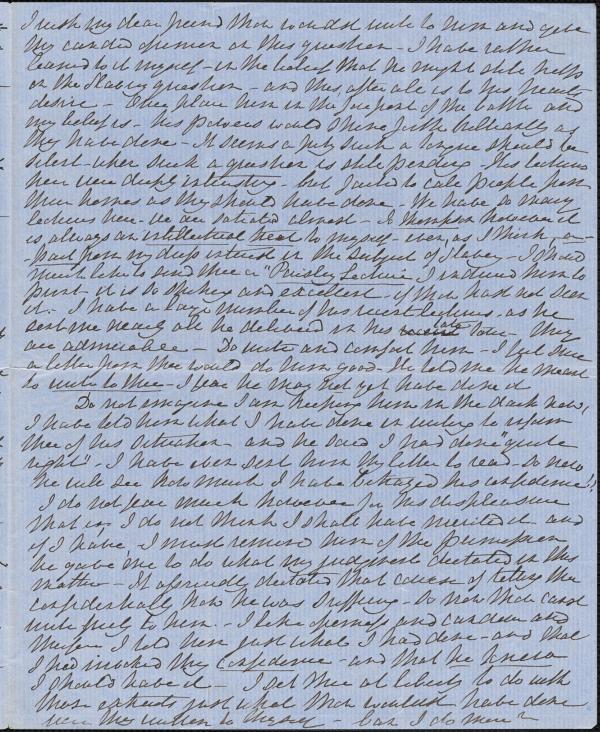 I wish my dear friend thou wouldst write to him and give
thy candid opinion on this question - I have rather
leaned to it myself - in the belief that he might still help
on the Slavery question - and this, after all is to his hearts
desire - They place him in the forefront of the battle and
my belief is - his powers would shine forth brilliantly as
they have done - It seems a pity such a tongue should be
silent when such a question is still pending - His lectures
here were deeply interesting - but failed to call people from
their homes as they should have done - We have so many
lectures here - we are satiated almost - G Thompson however it
is always an intellectual treat to myself - even, as I think, a-
-part from my deep interest in the subject of Slavery - I should
much like to send thee a "Paisley Lecture" I induced him to
print - it is so spicy and excellent - if thou hast not seen
it - I have a large number of his recent lectures, as he
sent me nearly all he delivered in his late tour - They
are admirable - Do write and comfort him - I feel sure
a letter from thee would do him good - He told me he meant
to write to thee - I fear he may not yet have done it
Do not imagine I am keeping him in the dark now,
I have told him what I have done in writing to inform
thee of his situation - and he said I had done "quite
right" - I have even sent him thy letter to read - so now
he will see how much I have betrayed his confidence!!
I do not fear much however for his displeasure
that is, I do not think I shall have merited it - and
if I have, I must remind him of the permission
he gave me to do what my judgment dictated in this
matter - It assuredly dictated that course of telling thee
confidentially how he was suffering - So now thou canst
write freely to him. - I like openness and candour and
therefore I told him just what I had done - and that
I had invoked thy confidence - and that he knew
I should have it - I set thee at liberty to do with
those extracts just what thou wouldst have done
were they written to thyself - can I do more?